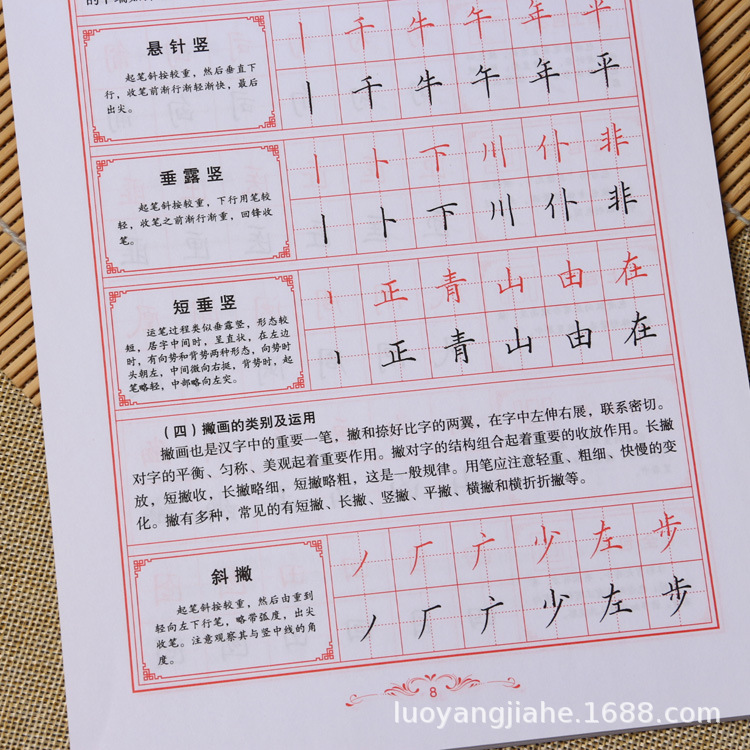 悬针竖
起笔斜按较重，然后垂直下
行，收笔前渐行渐轻渐快，最后
出尖。
丨千牛午年平
丨千牛午年平
垂露竖
起笔斜按较重，下行用笔较
轻，收笔之前渐行渐重，回锋收
笔。
丨卜下川仆非
丨卜下川仆非
短垂竖
运笔过程类似垂露竖，形态较
短，居字中间时，呈直状，在左边
时，有向势和背势两种形态，向势时
头朝左，中间微向右挺，背势时，起
笔略轻，中部略向左突。
丨正青山由在
丨正青山由在
（四）撇画的类别及运用
撇画也是汉字中的重要一笔，撇和捺好比字的两翼，在字中左伸右展，联系密切。
对字的平衡、匀称、美观起着重要作用。撇对字的结构组合起着重要的收放作用。长撇
放，短撇收，长撇略细，短撇略粗，这是一般规律。用笔应注意轻重、粗细、快慢的变
化。撇有多种，常见的有短撇、长撇、竖撇、平撇、横撇和横折折撇等。
斜撇
起笔斜按较重，然后由重到
轻向左下行笔，略带弧度，出尖
收笔。注意观察其与竖中线的角
度。
丿厂广少左步
丿厂广少左步
8
luoyangjiahe.1688.com